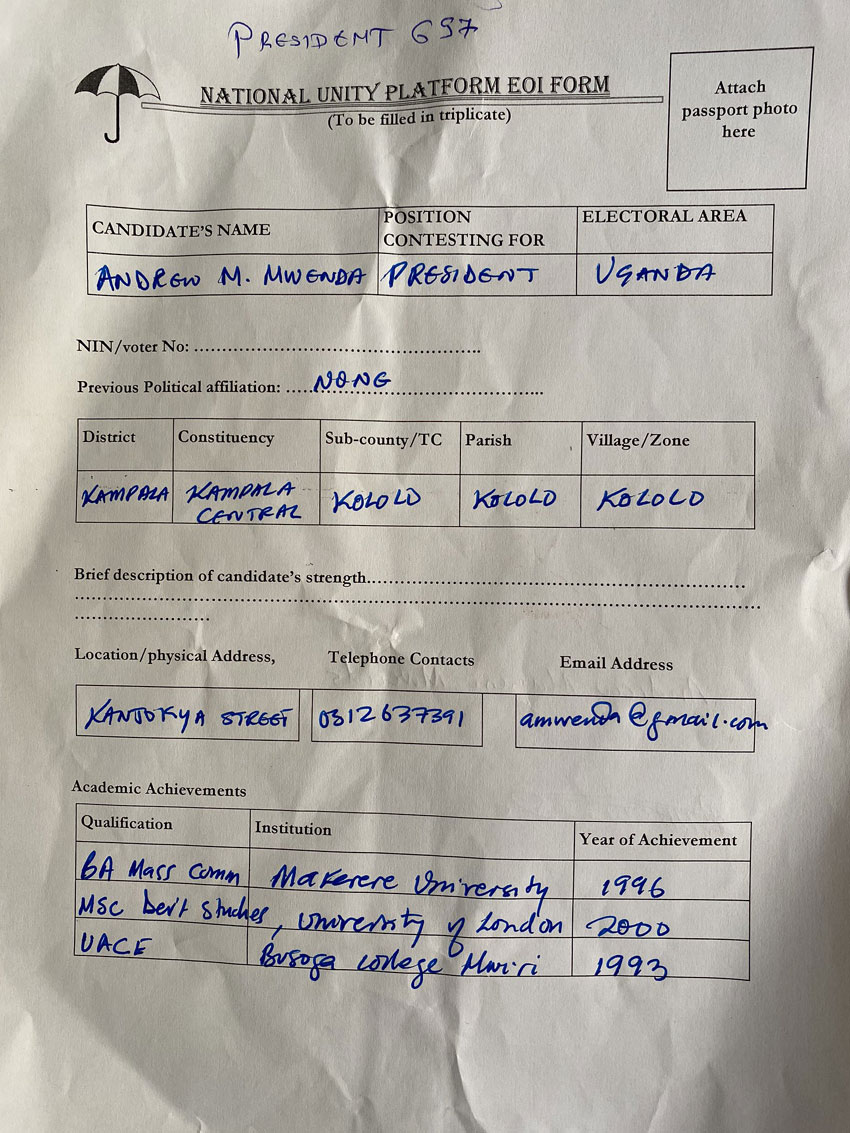 PRESIDENT 657
NATIONAL UNITY PLATFORM EOI FORM
(To be filled in triplicate)
Attach
passport photo
here
CANDIDATE'S NAME
POSITION
CONTESTING FOR
ELECTORAL AREA
ANDREW M. MWENDA
PRESIDENT
UGANDA
NIN/voter No: ..................................................
Previous Political affiliation: .....NONE...........................
District
Constituency
Sub-county/TC
Parish
Village/Zone
KAMPALA
KAMPALA
CENTRAL
KOLOLO
KOLOLO
KOLOLO
Brief description of candidate's strength..................................................................
....................................................................................................................
.......................
Location/physical Address,
Telephone Contacts
Email Address
KANJOKYA STREET
0312637391
amwenda@gmail.com
Academic Achievements
Qualification
Institution
Year of Achievement
BA Mass Comm
Makerere University
1996
MSc Dev't Studies,
University of London
2000
UACE
Busoga College Mwiri
1993